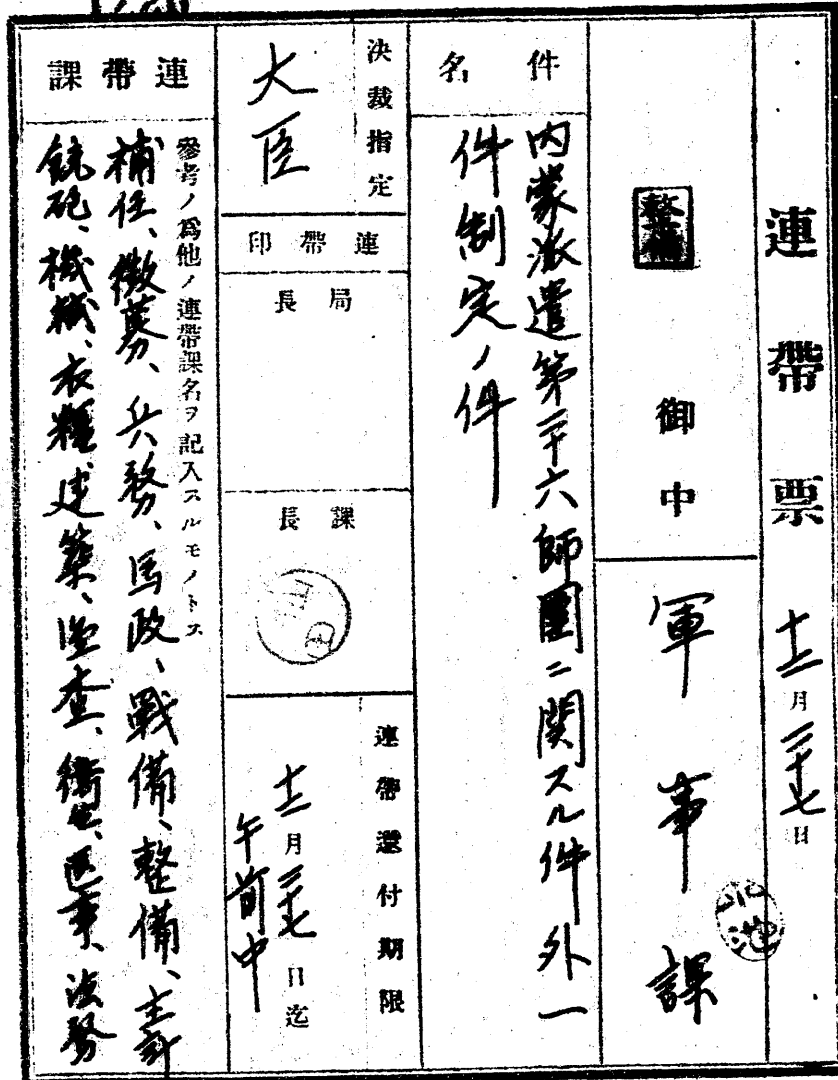 連帶票 十二月二十七日
整備 御中
軍事課
小池
件名
內蒙派遣第二十六師團ニ関スル件外一
件制定ノ件
決裁指定
大臣
連帶印
局長
課長
連帶還付期限
十二月二十七日迄
午前中
連帶課
參考ノ爲他ノ連帶課名ヲ記入スルモノトス
補任、徵募、兵務、馬政、戰備、整備、主計
銃砲、機械、衣糧、建築、監査、衛生、医事、法務